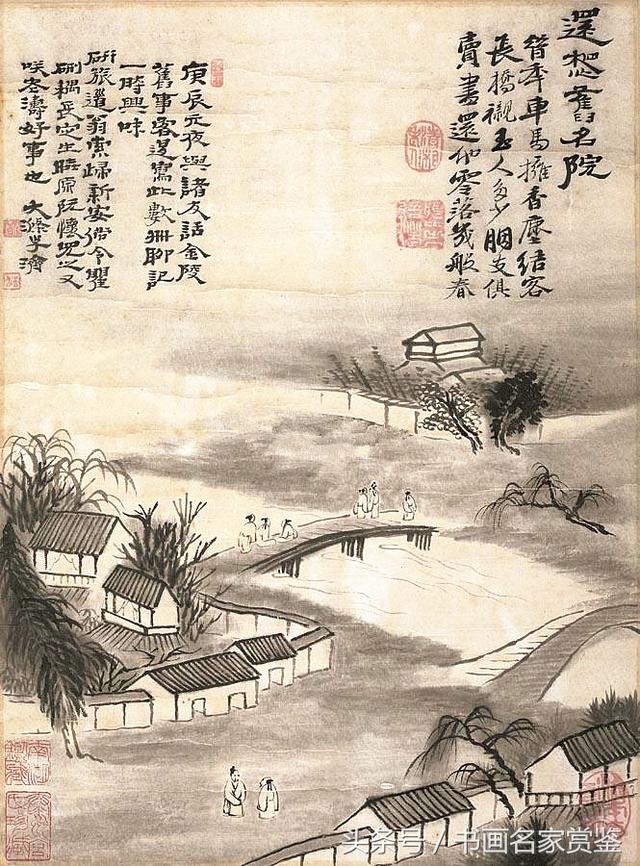 還想舊名院
昔年車馬擁香塵結客
長橋襯玉人多少胭支俱
賣盡還零落幾般春
庚辰元夜與諸友話金陵
舊事客邊寫此數冊聊記
一時興味
研旅道翁索歸新安倘令瞿
硎耦長定生曉原阮懷見之又
咲客濤好事也 大滌子濟
头条号/书画名家赏鉴